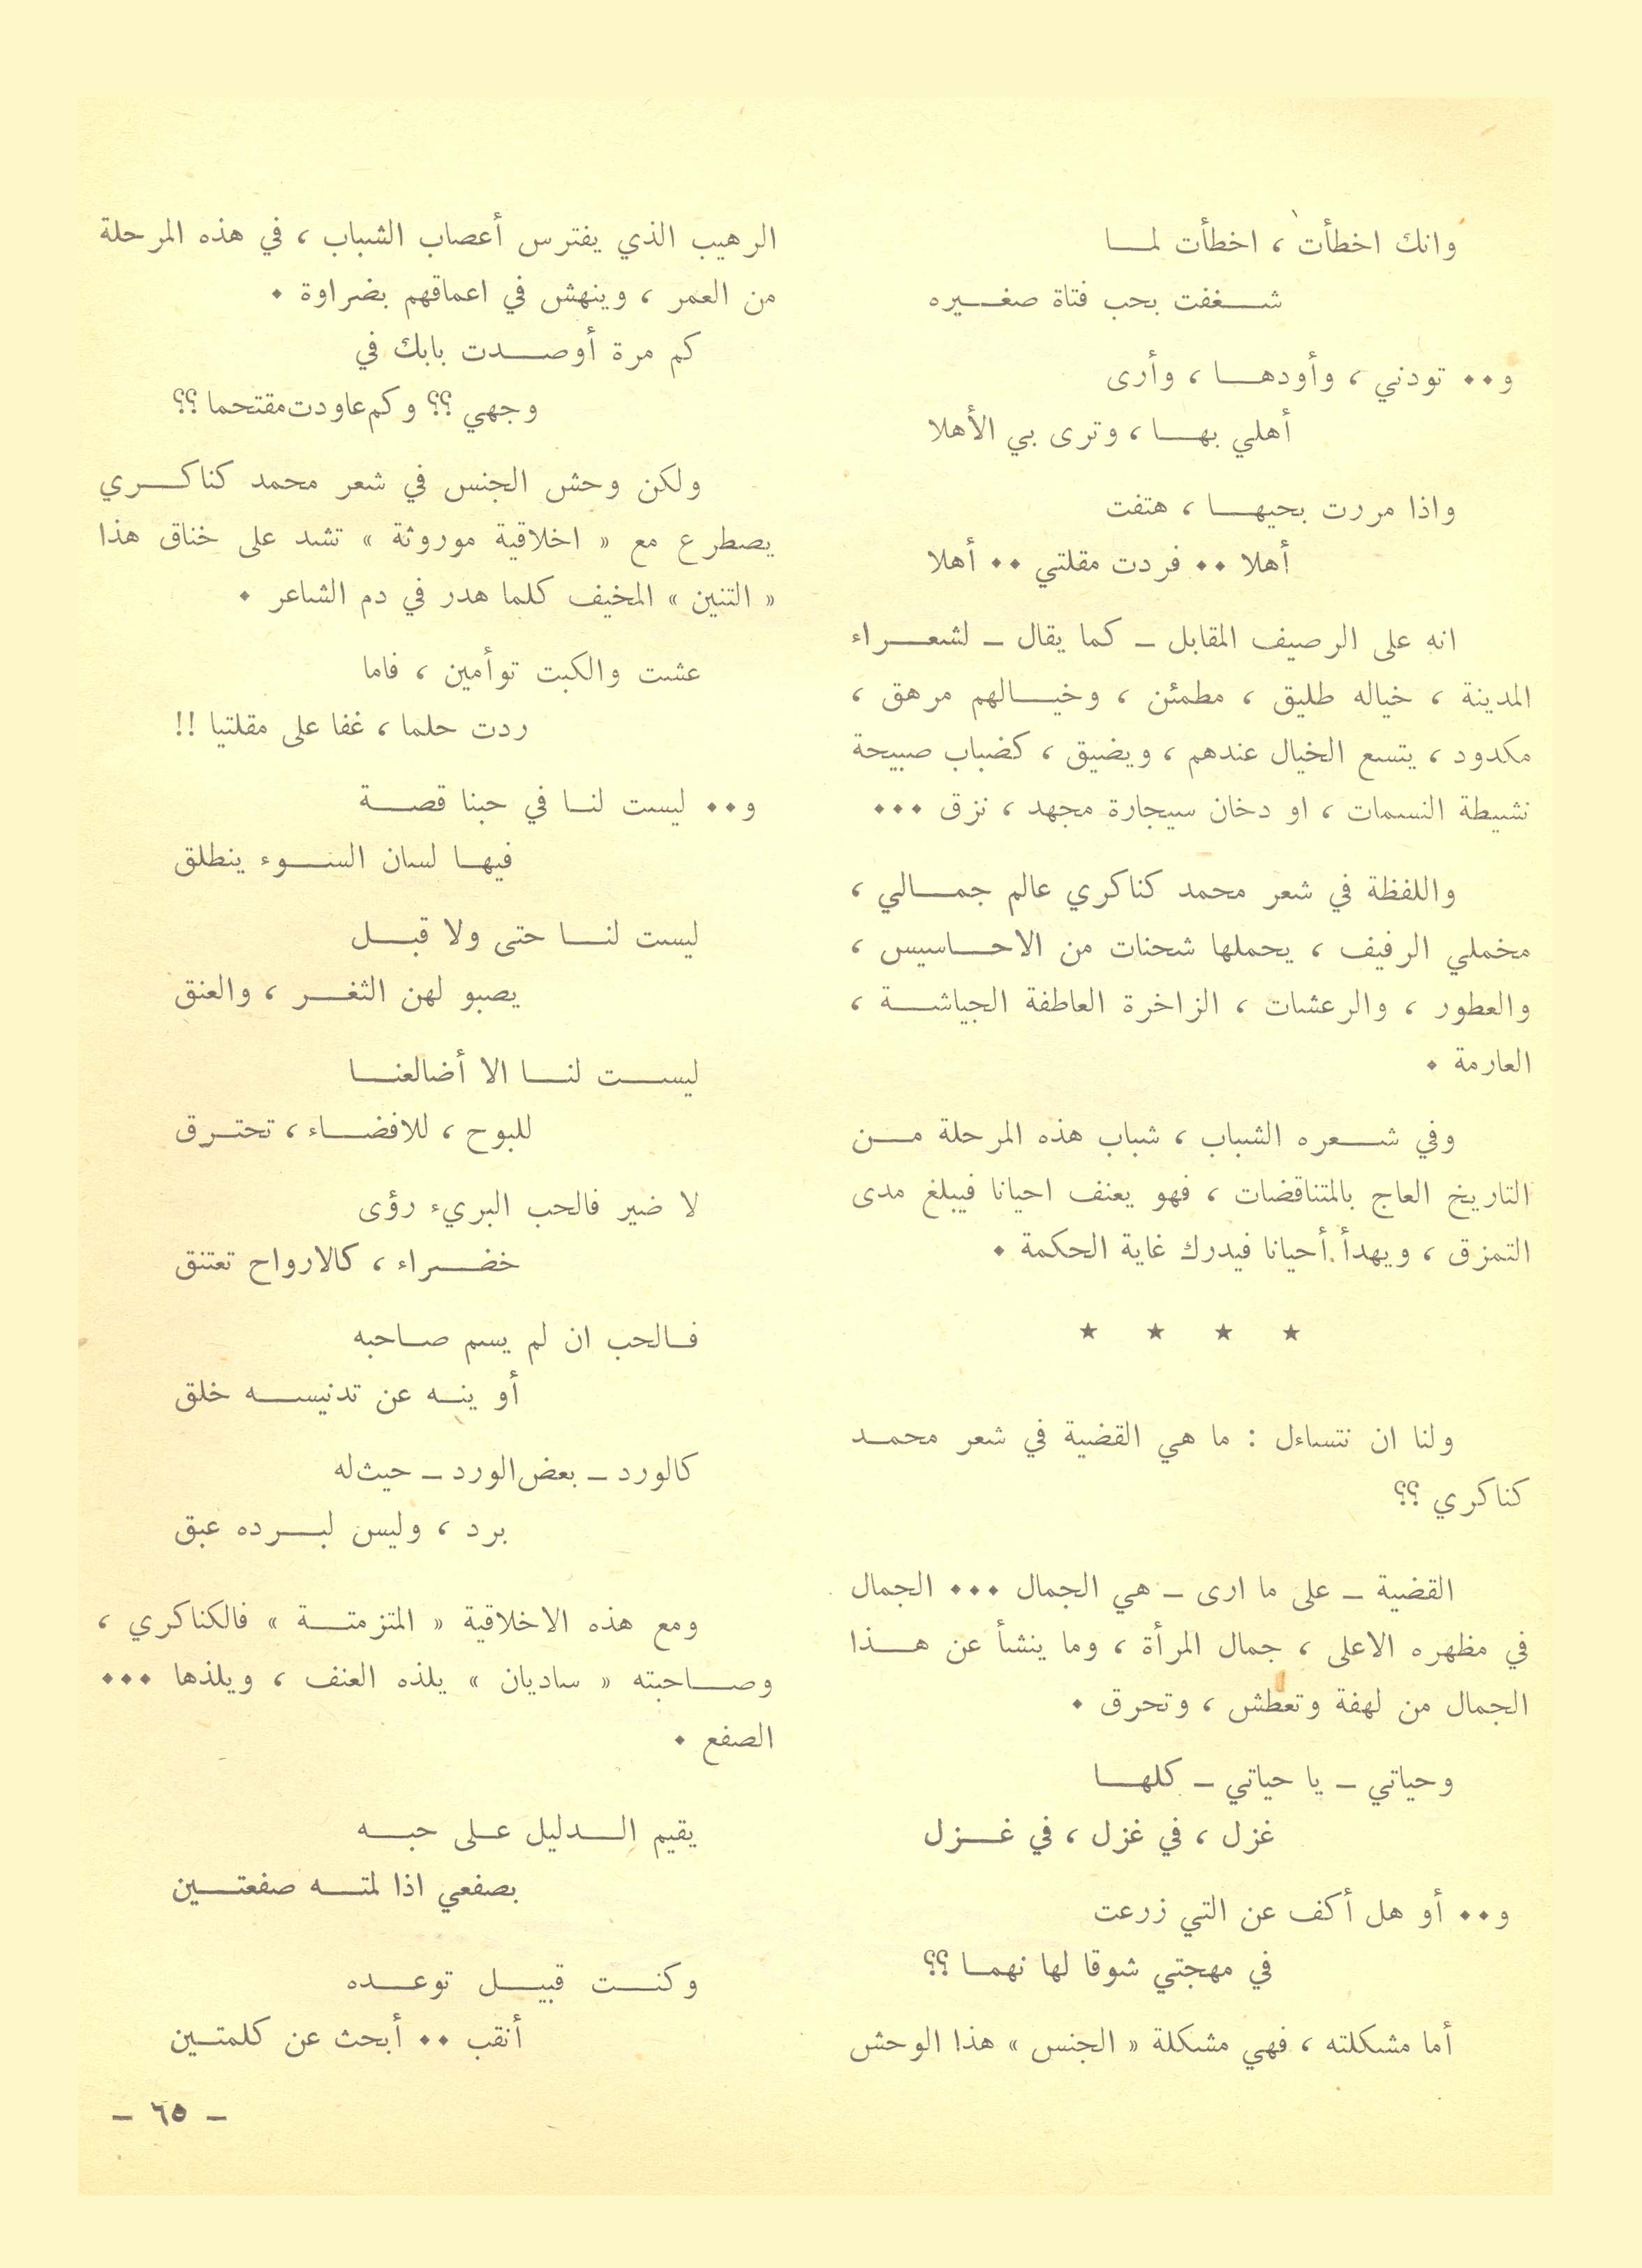 وانك اخطأت ، اخطأت لمـا
شـغفت بحب فتاة صغـيره
و٠٠ تودني ، وأودهـا ، وأرى
أهلي بهـا ، وترى بي الأهلا
واذا مررت بحيهـا ، هتفت
أهلا ٠٠ فردت مقلتي ٠٠ أهلا
انه على الرصيف المقابل ـ كما يقال ـ لشعـراء
المدينة ، خياله طليق ، مطمئن ، وخيـالهم مرهق ،
مكدود ، يتسع الخيال عندهم ، ويضيق ، كضباب صبيحة
نشيطة النسمات ، او دخان سيجارة مجهد ، نزق ٠٠٠
واللفظة في شعر محمد كناكري عالم جمـالي ،
مخملي الرفيف ، يحملها شحنات من الاحـاسيس ،
والعطور ، والرعشات ، الزاخرة العاطفة الجياشـة ،
العارمة ٠
وفي شـعره الشباب ، شباب هذه المرحلة مـن
التاريخ العاج بالمتناقضات ، فهو يعنف احيانا فيبلغ مدى
التمزق ، ويهدأ أحيانا فيدرك غاية الحكمة ٠
★ ★ ★ ★
ولنا ان نتساءل : ما هي القضية في شعر محمـد
كناكري ؟؟
القضية ـ على ما ارى ـ هي الجمال ٠٠٠ الجمال
في مظهره الاعلى ، جمال المرأة ، وما ينشأ عن هـذا
الجمال من لهفة وتعطش ، وتحرق ٠
وحياتي ـ يا حياتي ـ كلهـا
غزل ، في غزل ، في غـزل
و٠٠ أو هل أكف عن التي زرعت
في مهجتي شوقا لها نهمـا ؟؟
أما مشكلته ، فهي مشكلة « الجنس » هذا الوحش
الرهيب الذي يفترس أعصاب الشباب ، في هذه المرحلة
من العمر ، وينهش في اعماقهم بضراوة ٠
كم مرة أوصـدت بابك في
وجهي ؟؟ وكم عاودت مقتحما ؟؟
ولكن وحش الجنس في شعر محمد كناكـري
يصطرع مع « اخلاقية موروثة » تشد على خناق هذا
« التنين » المخيف كلما هدر في دم الشاعر ٠
عشت والكبت توأمين ، فاما
ردت حلما ، غفا على مقلتيا !!
و٠٠ ليست لنـا في حبنا قصـة
فيهـا لسان السـوء ينطلق
ليست لنـا حتى ولا قبـل
يصبو لهن الثغـر ، والعنق
ليسـت لنـا الا أضالعنـا
للبوح ، للافضـاء ، تحتـرق
لا ضير فالحب البريء رؤى
خضـراء ، كالارواح تعتنق
فـالحب ان لم يسم صـاحبه
أو ينـه عن تدنيسـه خلق
كالورد ـ بعض الورد ـ حيث له
برد ، وليس لبـرده عبق
ومع هذه الاخلاقية « المتزمتـة » فالكناكري ،
وصـاحبته « ساديان » يلذه العنف ، ويلذها ٠٠٠
الصفع ٠
يقيم الـدليل عـلى حبـه
بصفعي اذا لمتـه صفعتـين
وكنـت قبيـل توعـده
أنقب ٠٠ أبحث عن كلمتـين
ـ ٦٥ ـ